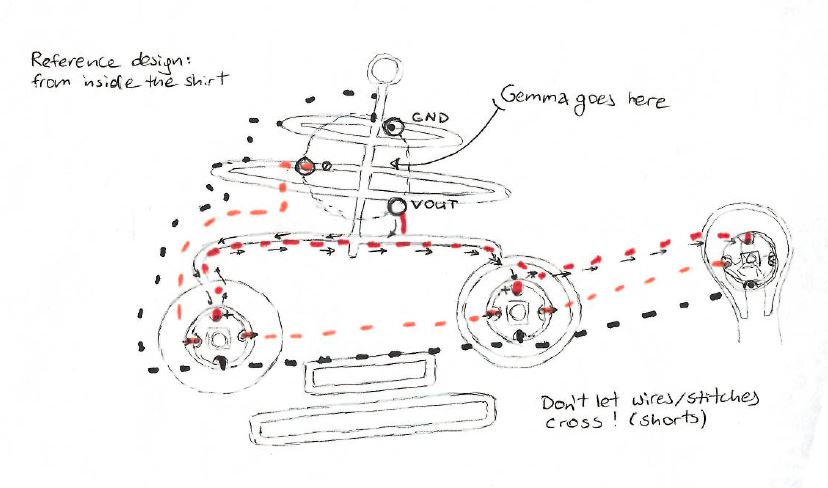 Reference design:
from inside the shirt
Gemma goes here
GND
Ø
VOUT
+
+
Don't let wires/stitches
cross! (shorts)